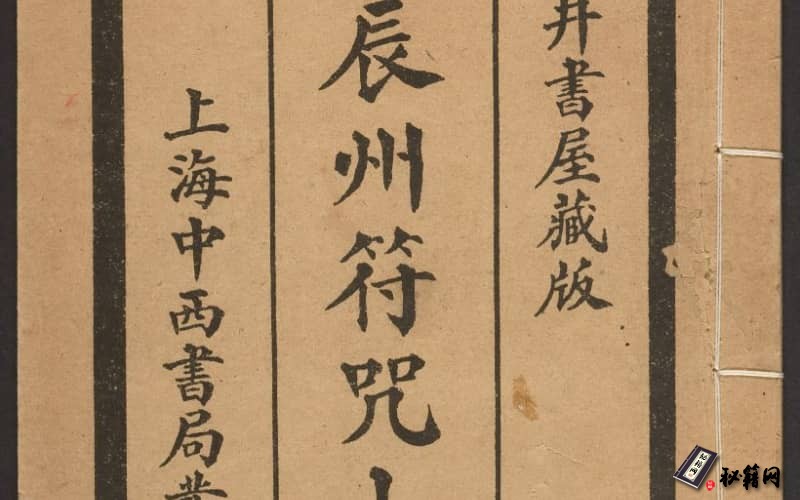 井書屋藏版
辰州符咒
上海中西書局
秘籍网